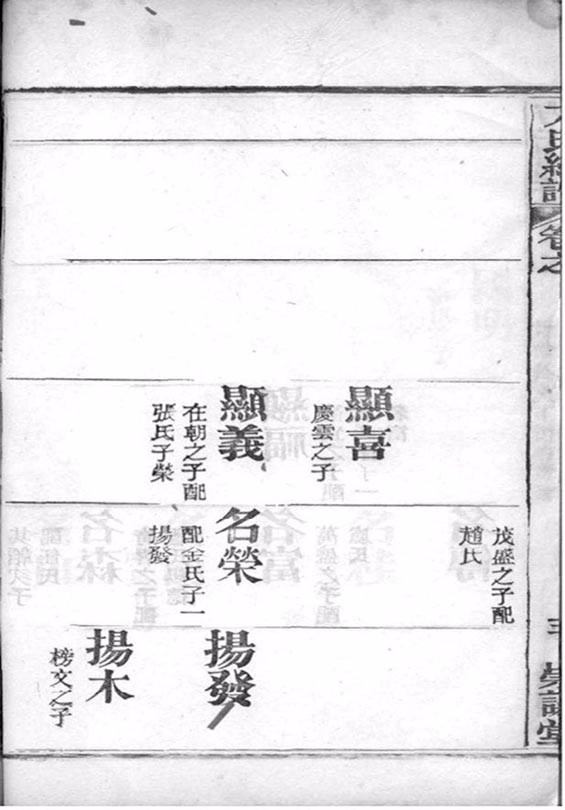 氏總譜
卷之
顯喜
慶雲之子
顯義
在朝之子配
張氏子榮
茂盛之子配
趙氏
名榮
配金氏子一
揚發
揚發
揚木
榜文之子